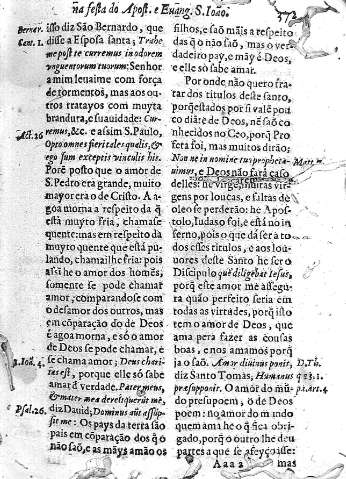 na festa do Apost. e Euang. S. Ioão.
Bernar.
Cant. 1.
isso diz São Bernardo, que
disse a Esposa santa; Trahe
me post te curremus in odorem
vnguentorum tuorum: Senhor
a mim leuaime com força
de tormentos, mas aos ou-
tros tratayos com muyta
brandura, e suauidade: Cur-
Act. 26
remus, &c. e assim S. Paulo,
Opto omnes fieri tales qualis, &
ego sum exceptis vinculis his.
Porẽ posto que o amor de
S. Pedro era grande, muito
mayor era o de Cristo. A a-
goa morna a respeito da q̃
está muyto fria, chamase
quente: mas em respeito da
muyto quente que está pu-
lando, chamailhe fria: pois
assi he o amor dos homẽs,
somente se pode chamar
amor, comparandose com
o desamor dos outros, mas
em cõparação do de Deos
é agoa morna, e só o amor
de Deos se pode chamar, e
1. Ioã. 4.
se chama amor; Deus chari-
tas est, porque elle só sabe
amar d verdade. Pater meus,
& mater mea dereliquerũt me,
Psal. 26.
diz Dauid; Dominus aũt assũp-
sit me: Os pays da terra são
pais em cõparação dos q̃ o
não saõ, e as mãys amão os
filhos, e saõ mãis a respeito
das q̃ não o saõ, mas o ver-
dadeiro pay, e mãy é Deos,
e elle só sabe amar.
Por onde não quero fra-
tar dos titulos deste santo,
porq̃ estados por si vale pou
co diãte de Deos, nẽ saõ co
nhecidos no Ceo, porq̃ Pro
feta foi, mas muitos dirão;
Non ne in nomine tuo propheta-
uimus, e Deos não fará caso
delles: he virgẽ, muitas vir-
gens por loucas, e faltas de
oleo se perderão: he Apos-
tolo, Iudas o foi, e está no in-
ferno, pois o que dá ser a to
dos esses titulos, e aos lou-
uores deste Santo he ser o
Discipulo quẽ diligebat Iesus,
porq̃ este amor me assegu-
ra quão perfeito seria em
todas as virtudes, porq̃ isto
tem o amor de Deos, que
ama pera fazer as cousas
boas, e nos amamos porq̃
D. Th.
ja o saõ. Amor diuinus ponit,
diz Santo Tomas, Humanus
præsupponit. O amor do mũ-
do presupoem, o de Deos
poem: no amor do mundo
quem ama he o q̃ fica obri-
gado, porq̃ o outro lhe deu
partes a que se afeyçoasse:
Aaa 2
mas